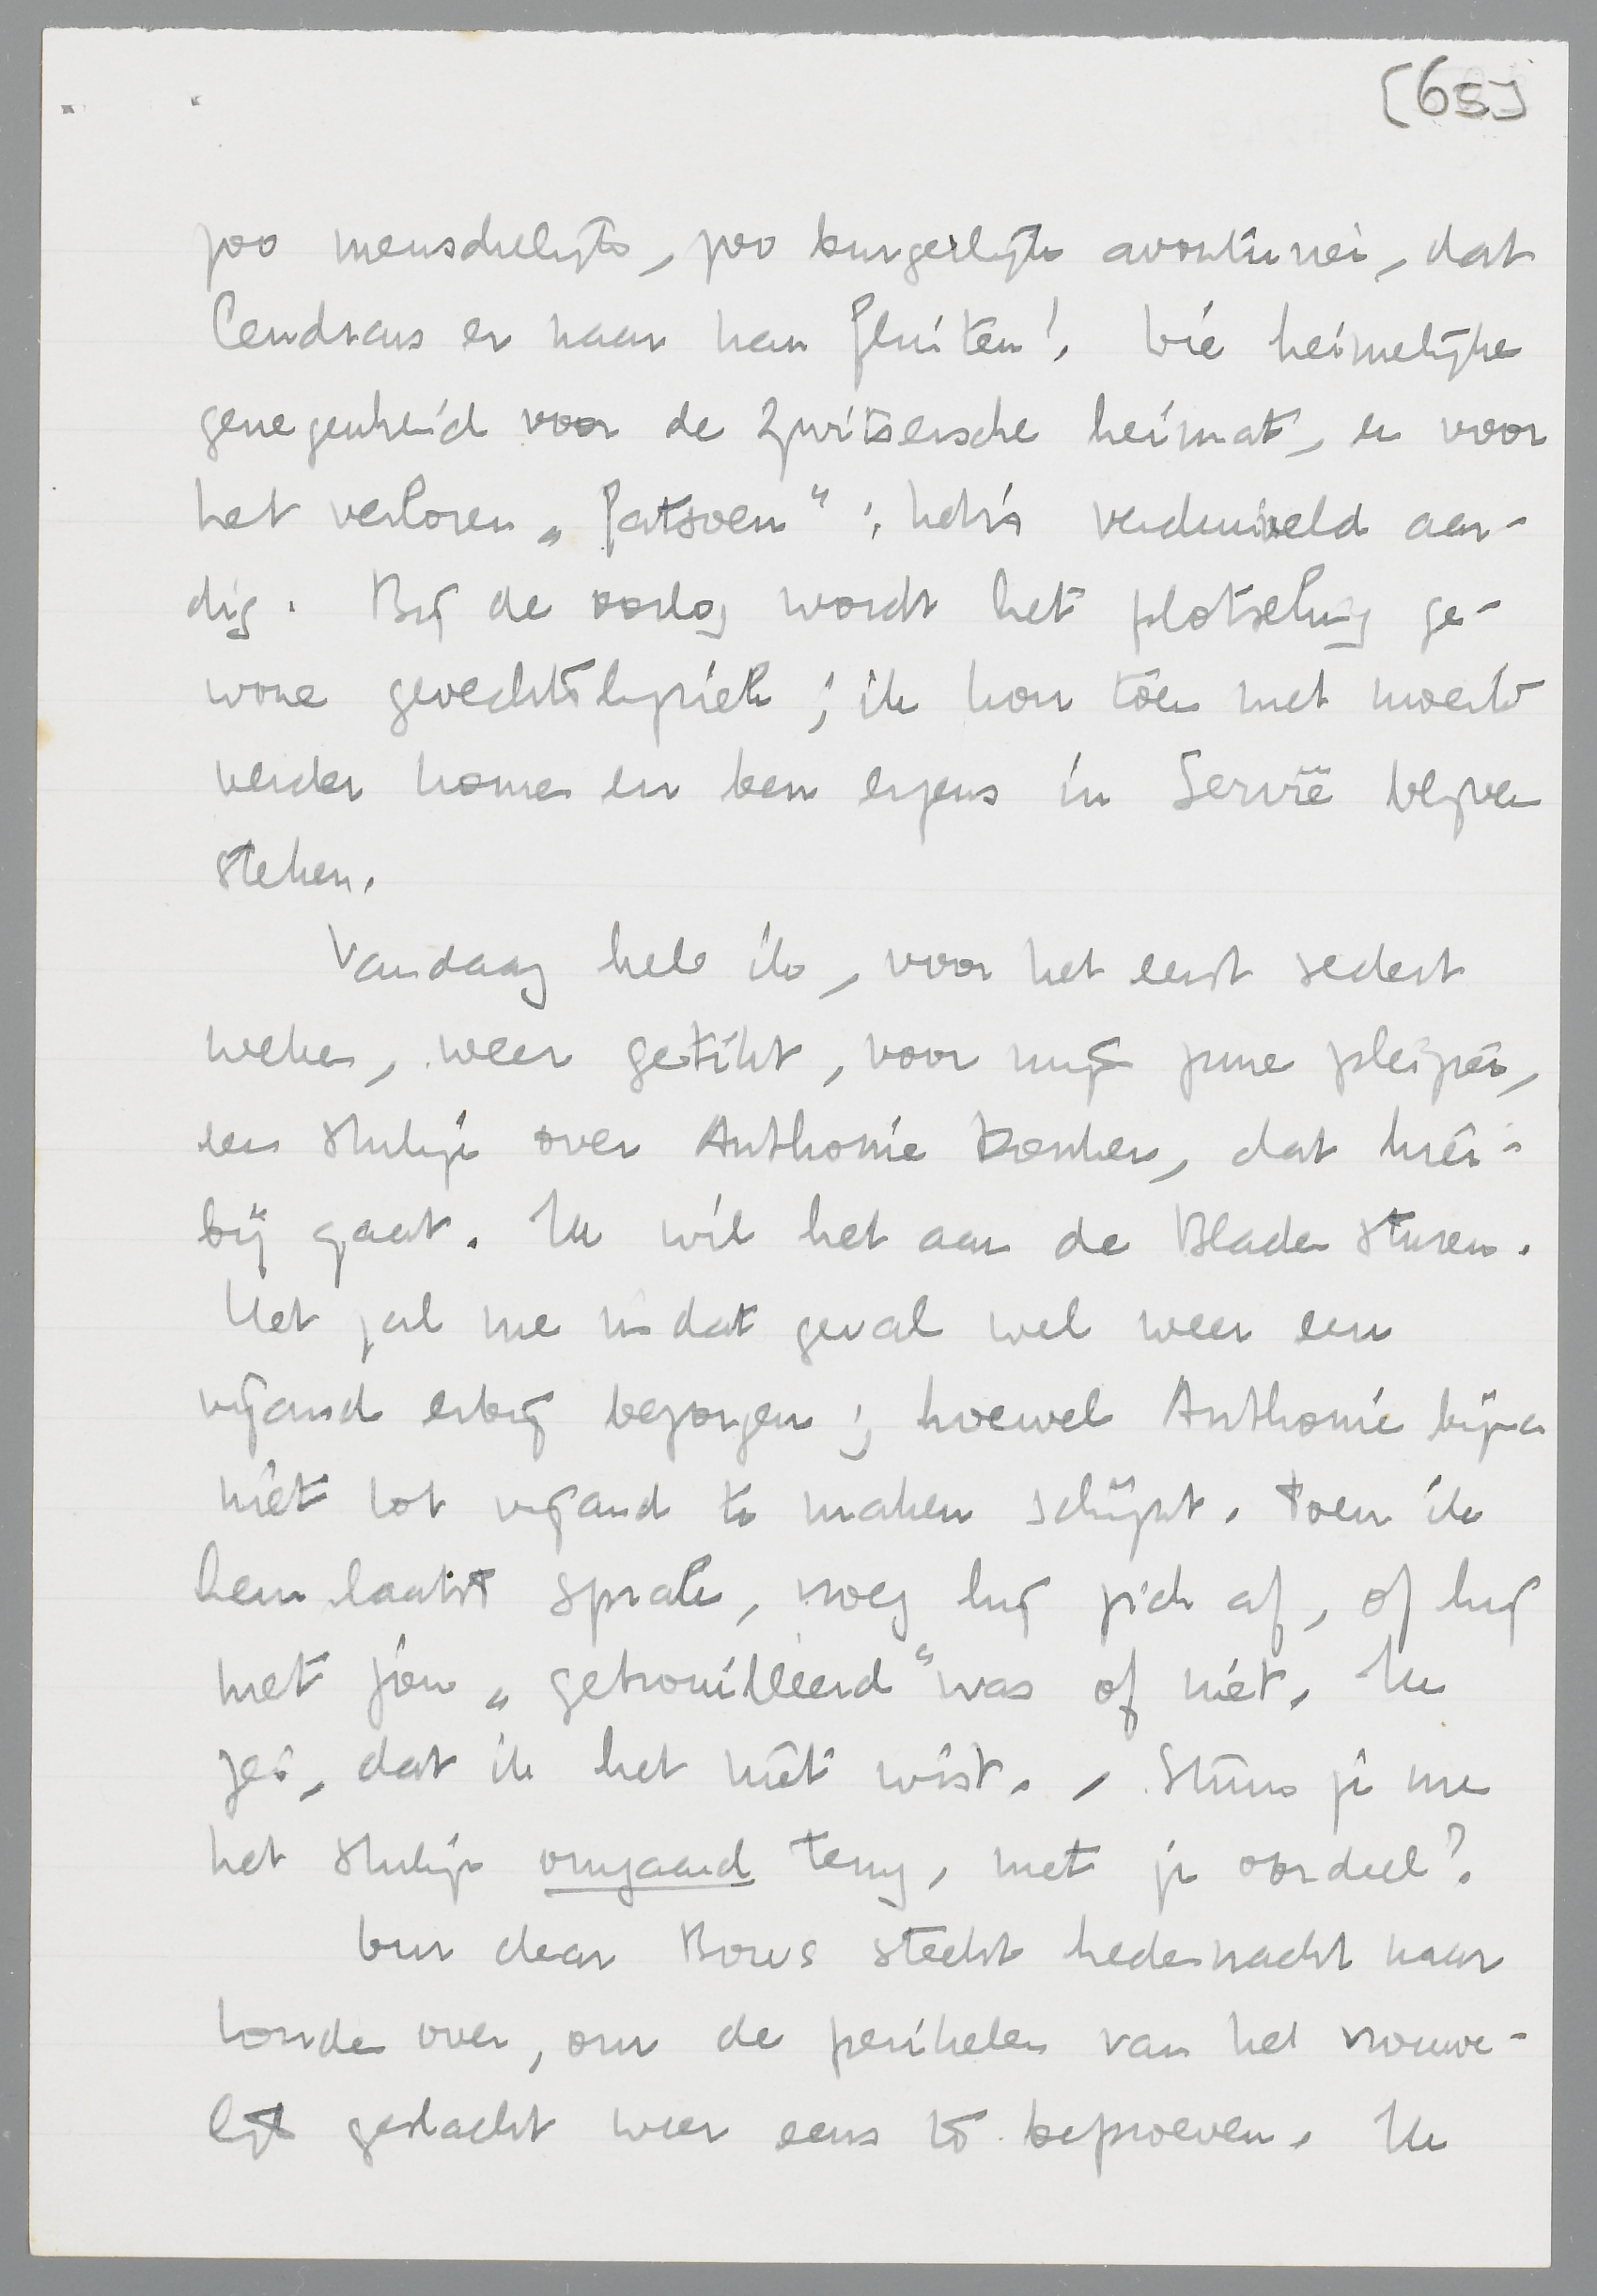 [65]
zoo menschelijke, zoo burgerlijke avonturier, dat
Cendrars er naar kan fluiten! Die heimelijke
genegenheid voor de Zwitsersche heimat, en voor
het verloren „fatsoen”; het is verduiveld aar-
dig. Bij de oorlog wordt het plotseling ge-
wone gevechtslyriek; ik kon toen met moeite
verder komen en ben ergens in Servië blijven
steken.
Vandaag heb ik, voor het eerst sedert
weken, weer getikt, voor mijn plezier,
een stukje over Anthonie Donker, dat hier-
bij gaat. Ik wil het aan de Bladen sturen.
Het zal me in dat geval wel weer een
vijand erbij bezorgen; hoewel Anthonie bijna
niet tot vijand te maken schijnt. Toen ik
hem laatst sprak, vroeg hij zich af, of hij
met jou „getrouilleerd” was of niet. Ik
zei, dat ik het niet wist. Stuur je me
het stukje omgaand terug, met je oordeel?
Our dear Bows steekt hedennacht naar
Londen over, om de perikelen van het vrouwe-
lijk geslacht weer eens te beproeven. Ik